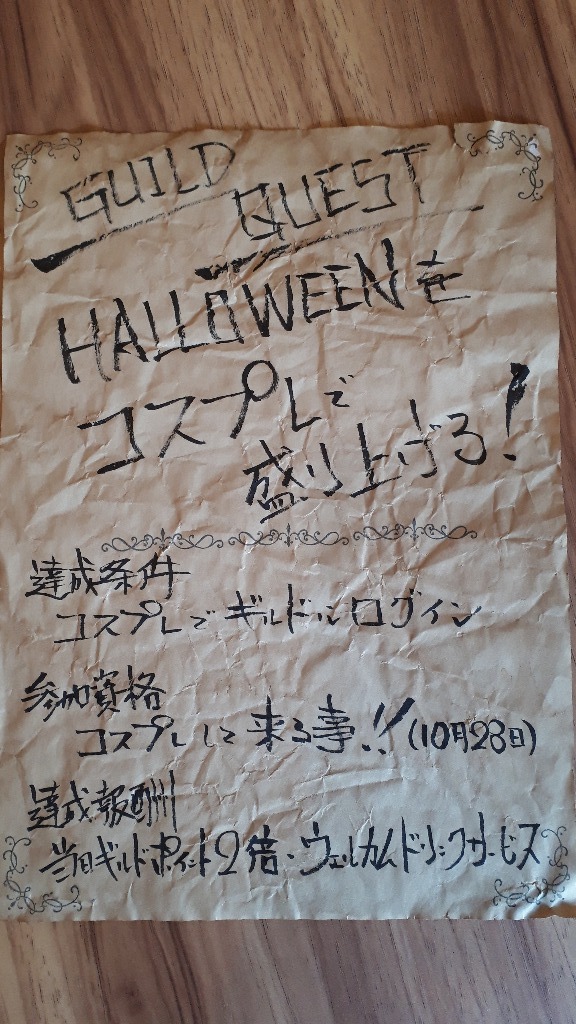 GUILD
QUEST
HALLOWEENを
コスプレで
盛り上げろ!
達成条件
コスプレでギルドにログイン
参加資格
コスプレして来る事!!(10月28日)
達成報酬
当日ギルドポイント2倍・ウェルカムドリンクサービス